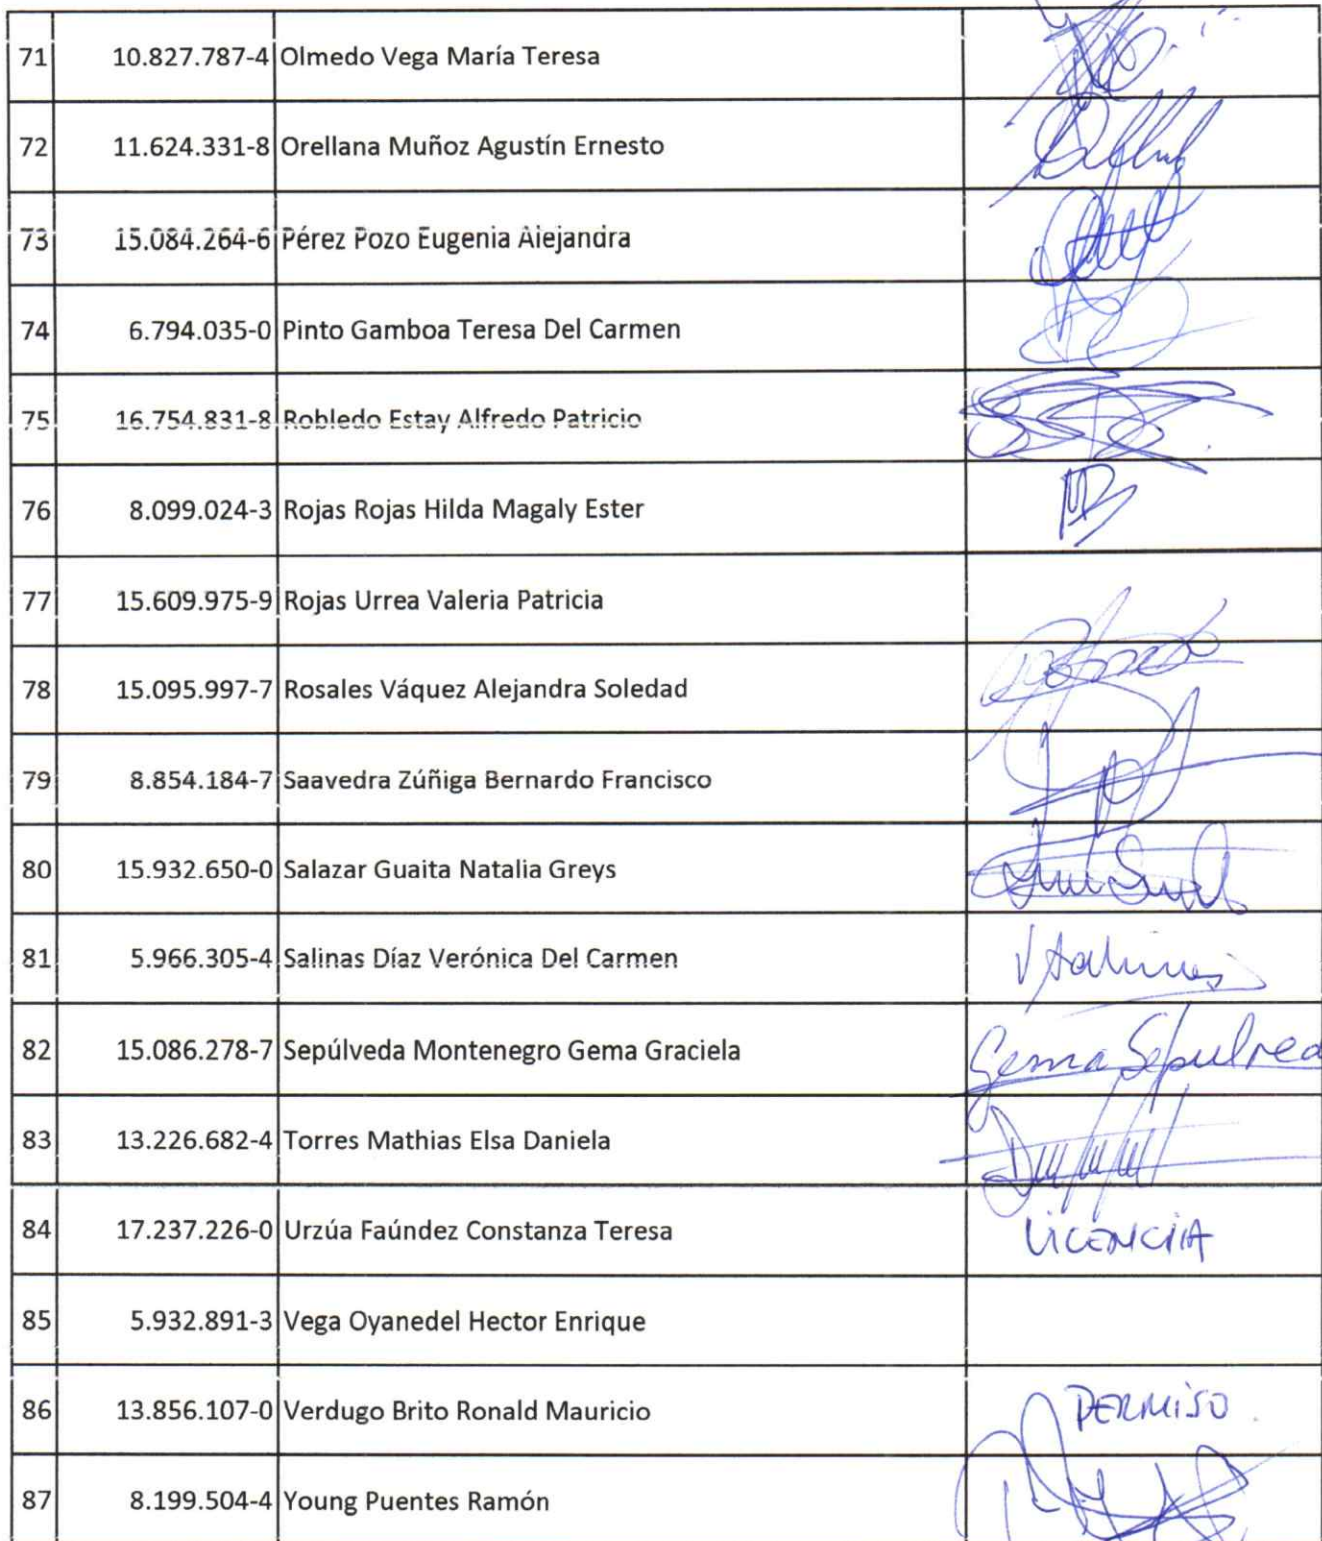 71 10.827.787-4 Olmedo Vega María Teresa
72 11.624.331-8 Orellana Muñoz Agustín Ernesto
73 15.084.264-6 Pérez Pozo Eugenia Alejandra
74 6.794.035-0 Pinto Gamboa Teresa Del Carmen
75 16.754.831-8 Robledo Estay Alfredo Patricio
76 8.099.024-3 Rojas Rojas Hilda Magaly Ester
77 15.609.975-9 Rojas Urrea Valeria Patricia
78 15.095.997-7 Rosales Váquez Alejandra Soledad
79 8.854.184-7 Saavedra Zúñiga Bernardo Francisco
80 15.932.650-0 Salazar Guaita Natalia Greys
81 5.966.305-4 Salinas Díaz Verónica Del Carmen VSalinas
82 15.086.278-7 Sepúlveda Montenegro Gema Graciela Gema Sepulved
83 13.226.682-4 Torres Mathias Elsa Daniela
84 17.237.226-0 Urzúa Faúndez Constanza Teresa LICENCIA
85 5.932.891-3 Vega Oyanedel Hector Enrique
86 13.856.107-0 Verdugo Brito Ronald Mauricio PERMISO.
87 8.199.504-4 Young Puentes Ramón